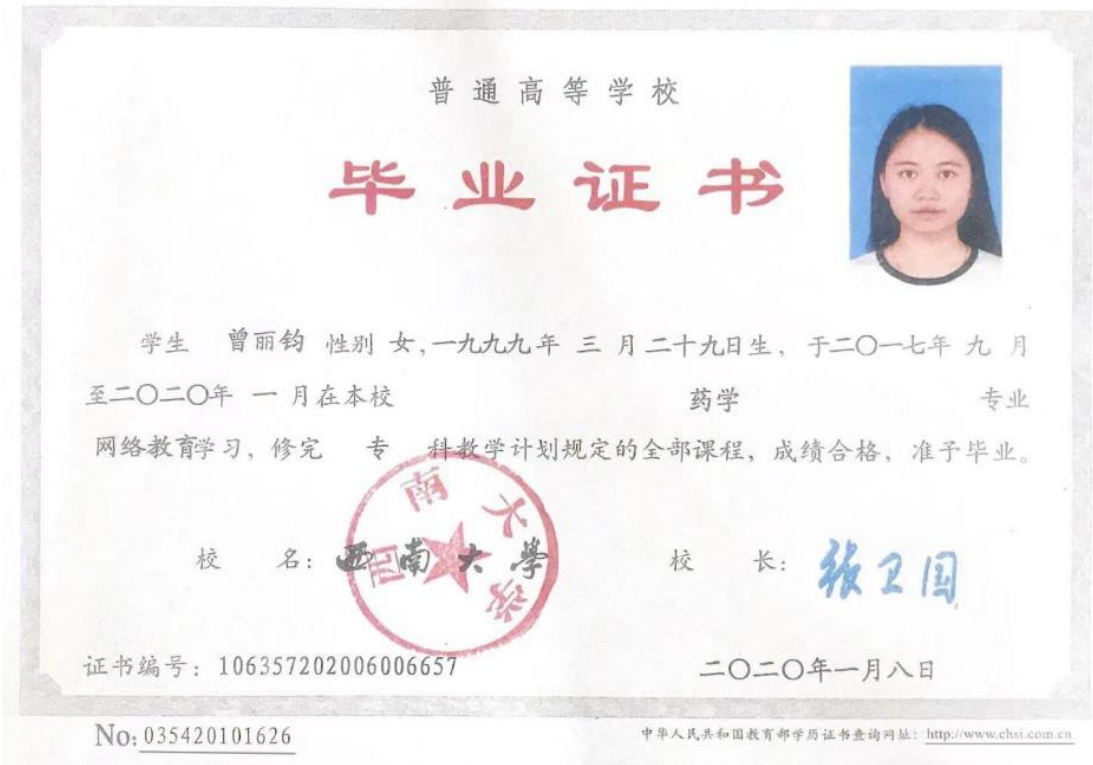 普通高等学校
毕业证书
学生 曾丽钧 性别 女,一九九九年 三 月二十九日生，于二〇一七年 九 月
至二〇二〇年 一 月在本校 药学 专业
网络教育学习，修完 专 科教学计划规定的全部课程，成绩合格，准予毕业。
校 名：西南大學 校 长：张卫国
西南大学
证书编号：106357202006006657 二〇二〇年一月八日
No: 035420101626 中华人民共和国教育部学历证书查询网址：http://www.chsi.com.cn